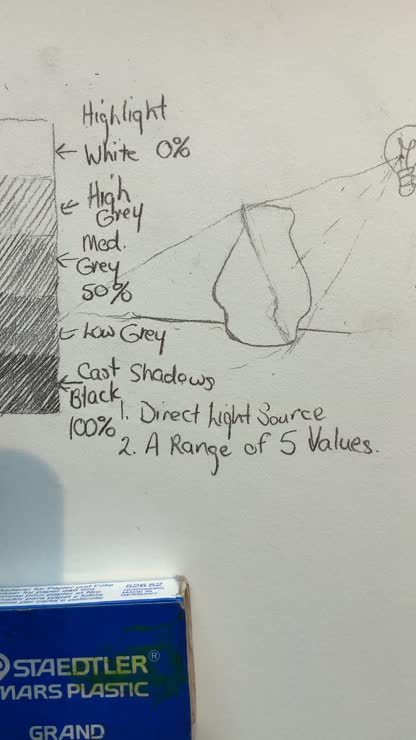 Highlight
White 0%
High
Grey
Med.
Grey
50%
Low Grey
Cast Shadows
Black
100%
1. Direct Light Source
2. A Range of 5 Values.
526 52
MADE IN
GERMANY
STAEDTLER®
MARS PLASTIC
GRAND